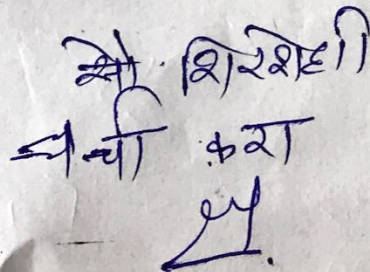 श्री. शिरशेही
चर्चा करा